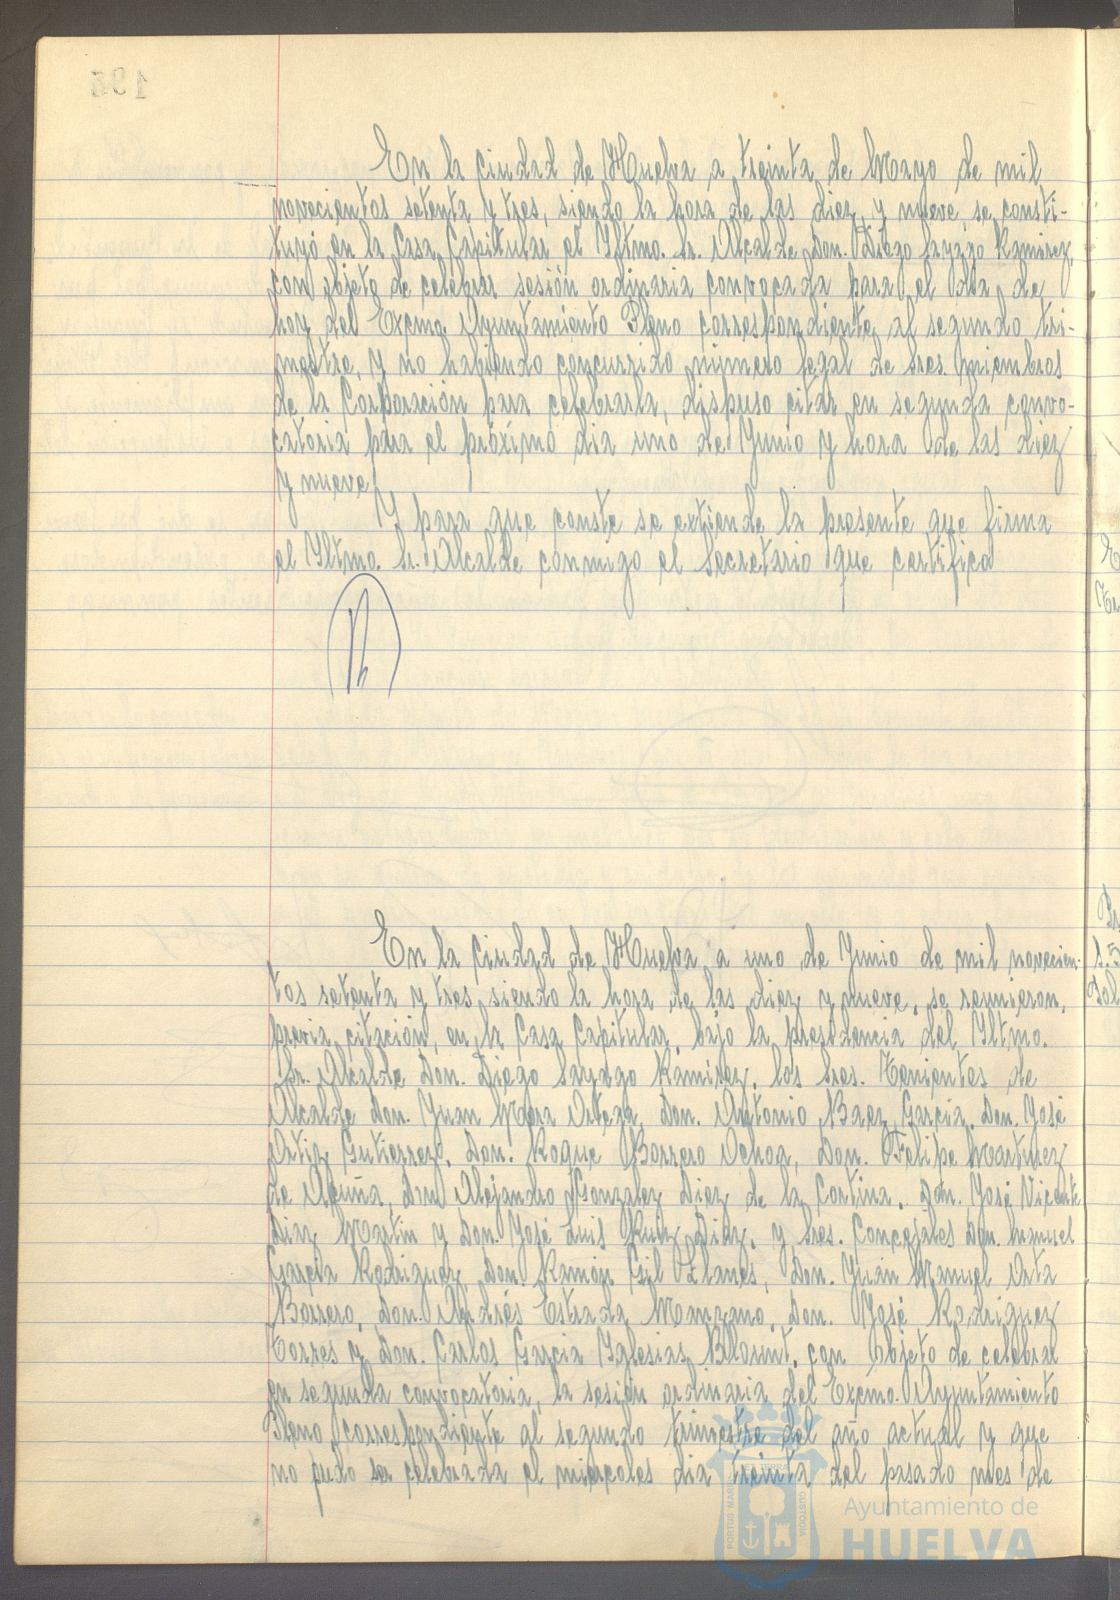 En la Ciudad de Huelva a treinta de Mayo de mil
novecientos setenta y tres, siendo la hora de las diez y nueve se consti-
tuyó en la Casa Capitular el Iltmo. Sr. Alcalde Don Diego Sayago Ramirez,
con objeto de celebrar sesión ordinaria convocada para el dia de
hoy del Excmo. Ayuntamiento Pleno correspondiente al segundo tri-
mestre, y no habiendo concurrido número legal de Sres. miembros
de la Corporación para celebrarla, dispuso citar en segunda convo-
catoria para el próximo dia uno de Junio y hora de las diez
y nueve.
Y para que conste se extiende la presente que firma
el Iltmo. Sr. Alcalde conmigo el Secretario que certifico
En la Ciudad de Huelva a uno de Junio de mil novecien-
tos setenta y tres, siendo la hora de las diez y nueve, se reunieron,
previa citación, en la Casa Capitular, bajo la presidencia del Iltmo.
Sr. Alcalde Don. Diego Sayago Ramirez, los Sres. Tenientes de
Alcalde Don. Juan Mora Don. Antonio Baez Garcia, Don. José
Ortiz Gutierrez, Don. Roque Borrero Ochoa, Don. Felipe Martinez
de Acuña, Don Alejandro Gonzalez Diez de la Cortina, Don. José Vicente
Diaz Martin y Don. José Luis Ruiz Diaz, y Sres. Concejales Don. Manuel
Garcia Rodriguez, Don. Ramón Gil Llanes, Don. Juan Manuel Orta
Borrero, Don. Andrés Estrada Manzano, Don. José Rodriguez
Torres y Don. Carlos Garcia Iglesias Blount, con objeto de celebrar
en segunda convocatoria, la sesión ordinaria del Excmo. Ayuntamiento
Pleno correspondiente al segundo trimestre del año actual y que
no pudo ser celebrada el miercoles dia treinta del pasado mes de
Ayuntamiento de
HUELVA